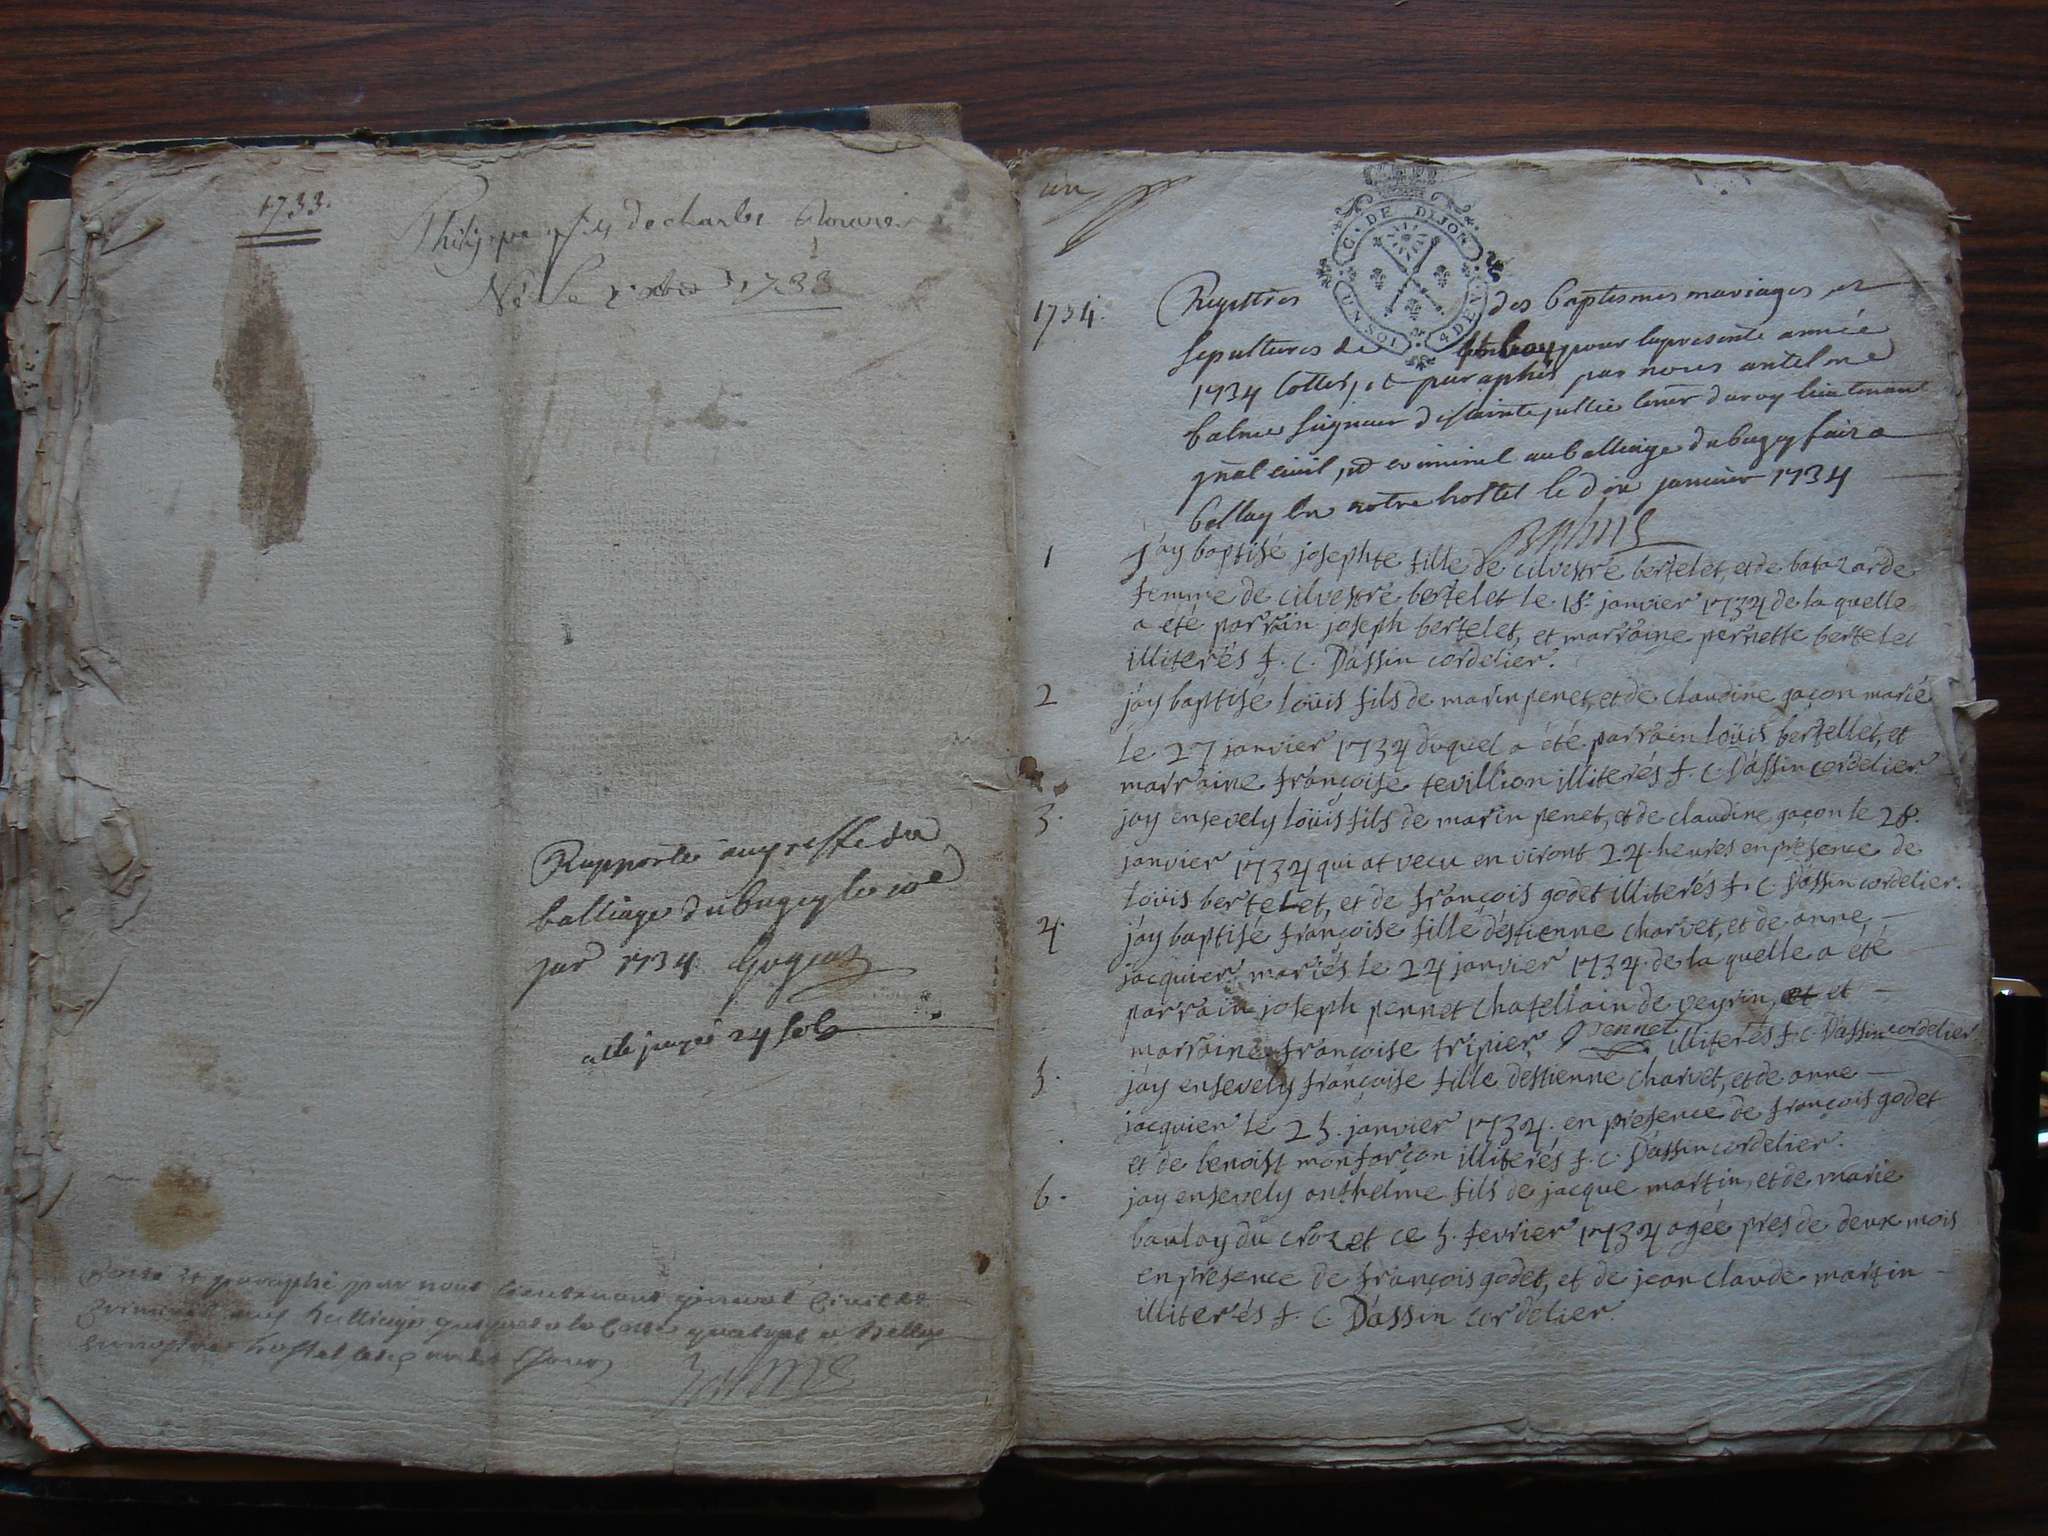 1733.
Philippe fils de charles
Né le 1733
Rapportée au greffe du
balliage du bugey le 10e
jer 1734
24 sols
paraphé par nous lieutenant general civil et
criminel balliage a Belley
hostel
Balme
un
G. DE DIJON
UN SOL 4 DEN.
1734.
Registres des baptesmes mariages et
sepultures de pour la presente année
1734 Cottés, et paraphés par nous antelme
balme seigneur de sainte jullie Coner du roy lieutenant
gnal civil, et criminel au balliage du bugey fait a
belley En notre hostel le dix janvier 1734
Balme
1 j'ay baptisé josephte fille de cilvestre bertelet, et de batazarde
femme de cilvestre bertelet le 18. janvier 1734 de la quelle
a été parrain joseph bertelet, et marraine pernette bertelet
illiterés f. C. Dassin cordelier.
2 jay baptisé loüis fils de marin penet, et de claudine gaçon marié
le 27 janvier 1734 duquel a été parrain loüis bertellet, et
marraine françoise tevillion illiterés f. C. Dassin cordelier
3. jay ensevely loüis fils de marin penet, et de claudine gaçon le 28.
janvier 1734 qui at vecu environt 24. heures en presence de
loüis bertelet, et de françois godet illiterés f. C. Dassin cordelier.
4. jay baptisé françoise fille destienne charvet, et de anne
jacquier mariés le 24 janvier 1734. de la quelle a été
parrain joseph pennet chatellain de veyrin, et et
marraine françoise tripier, Pennet illiterés f. C. Dassin cordelier
5. jay ensevely françoise fille destienne charvet, et de anne
jacquier le 25. janvier 1734. en presence de françois godet
et de benoist monfarcon illiterés f. C. Dassin cordelier.
6. jay ensevely anthelme fils de jacque martin, et de marie
baulay du crozet ce 5. fevrier 1734 agée pres de deux mois
en presence de françois godet, et de jean claude martin
illiterés f. C. Dassin cordelier.